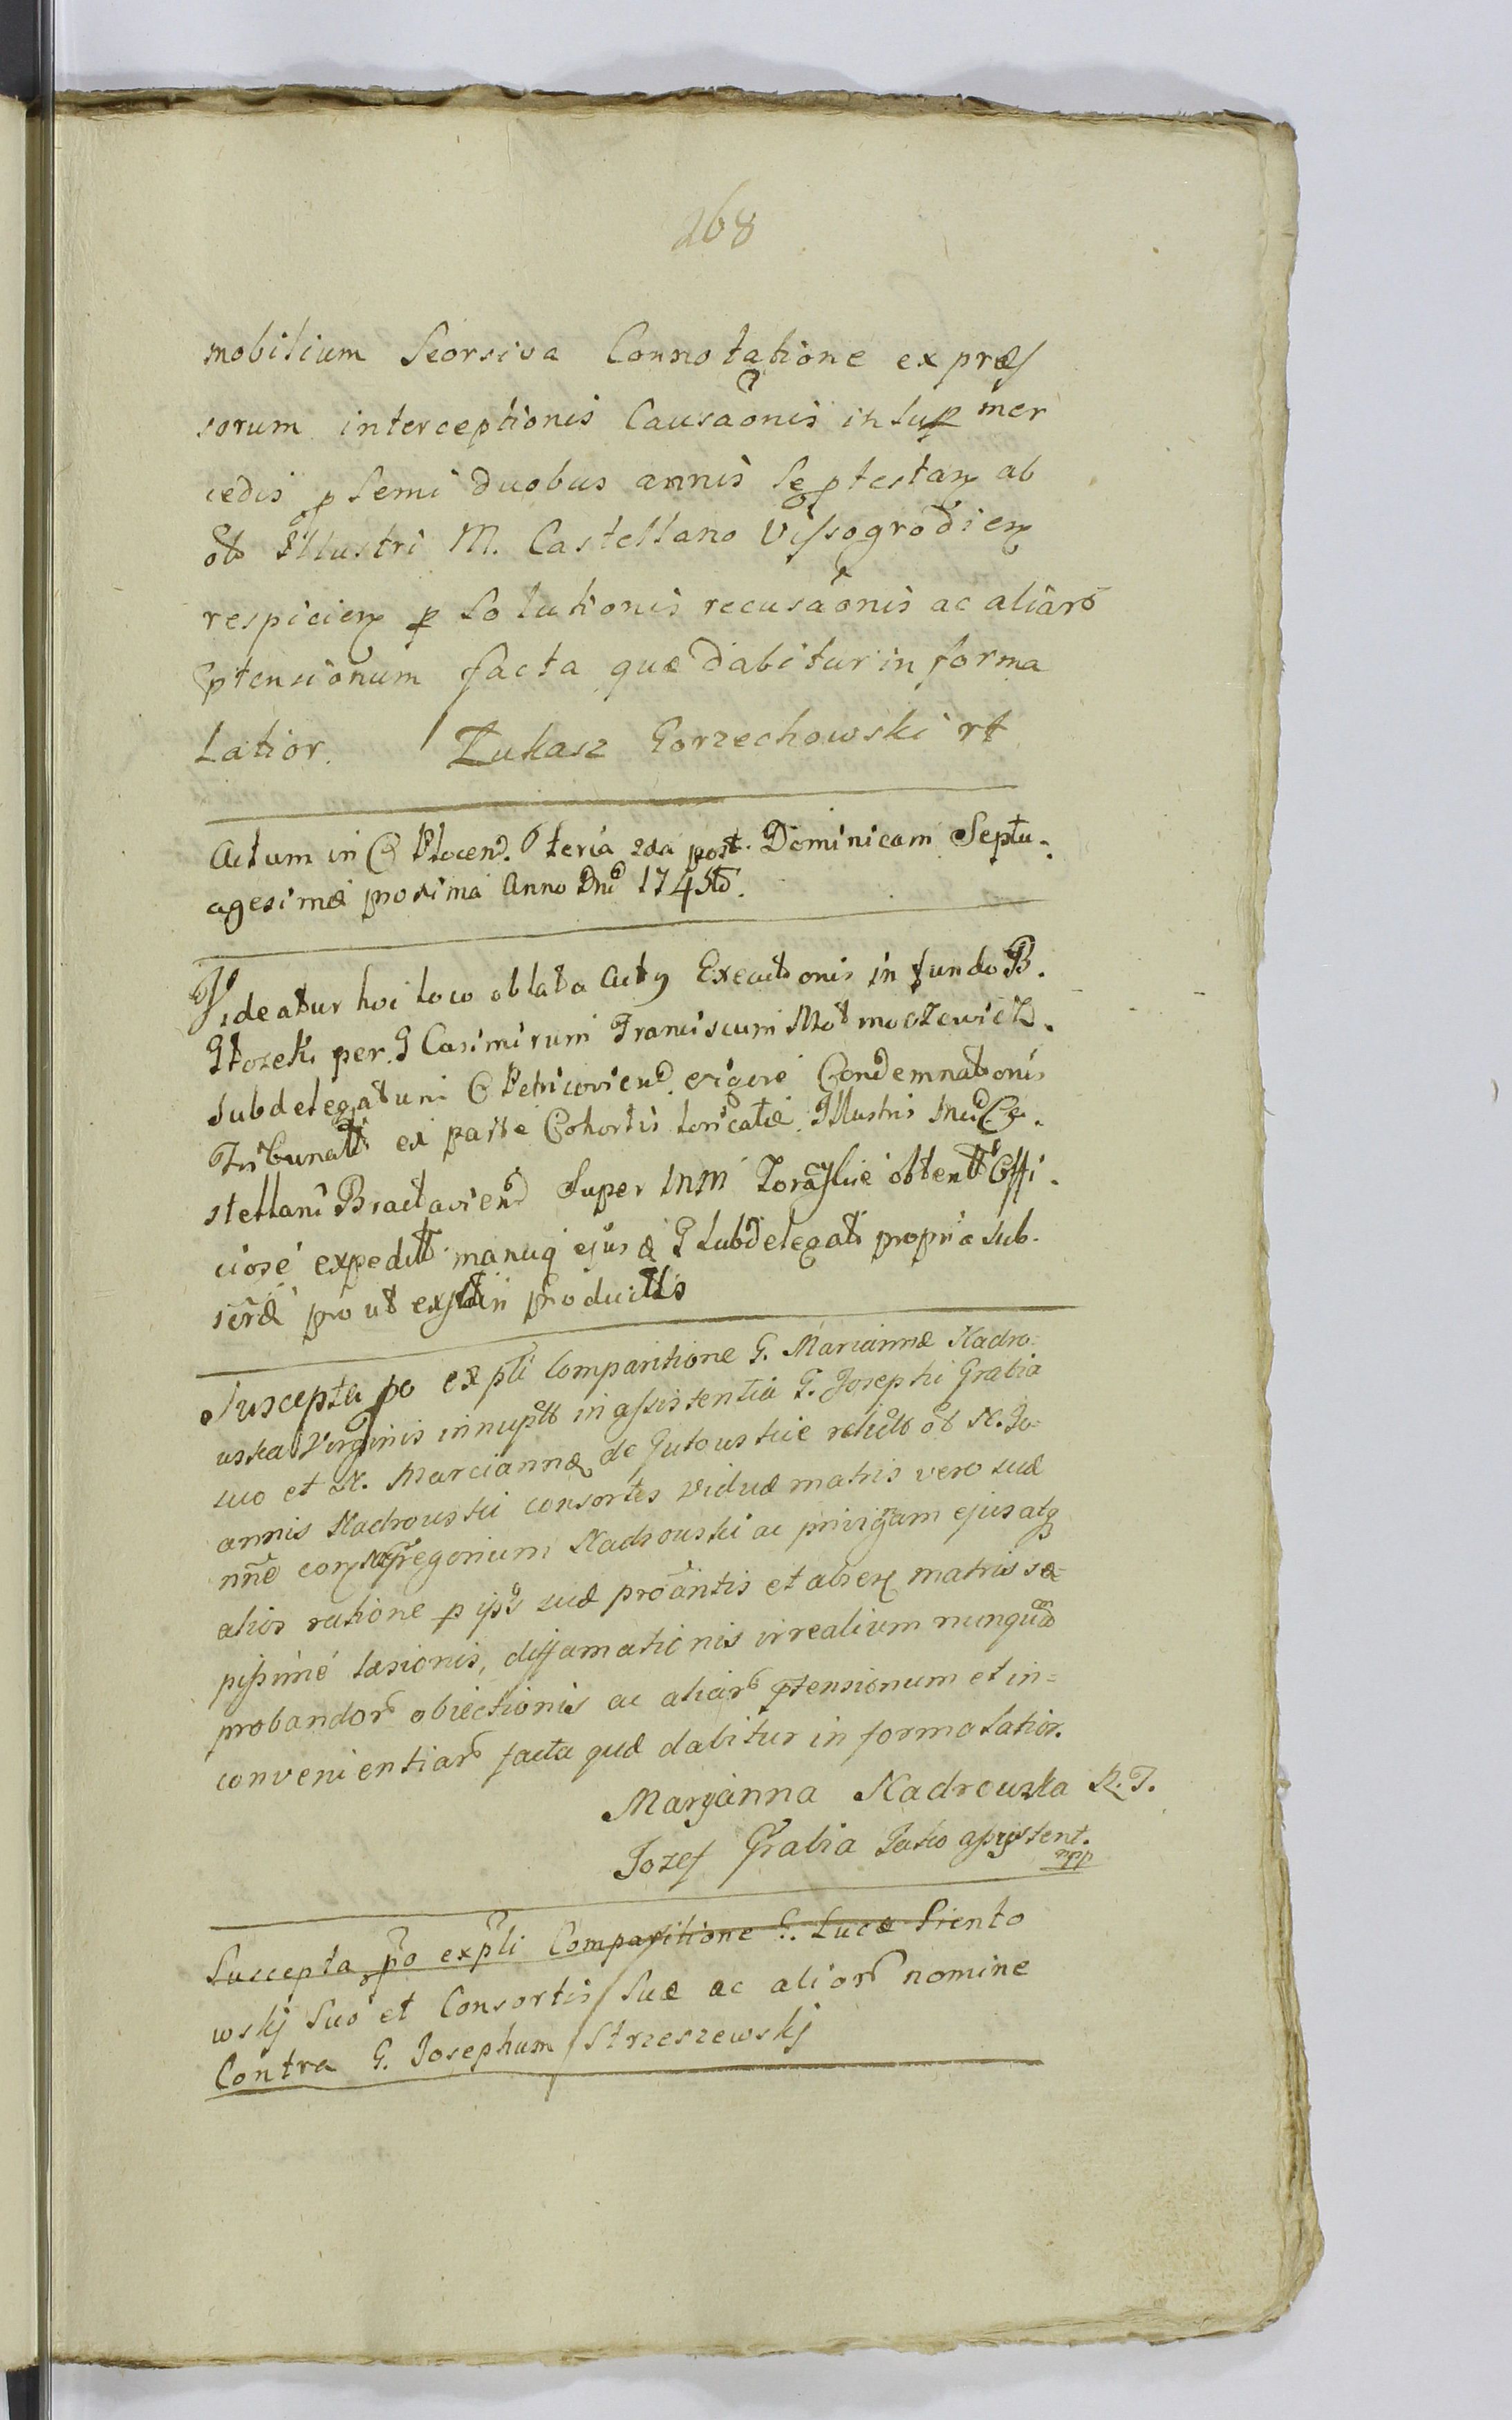 268
mobilium Seorsiva Connotatione expræs
sorum interceptionis Causaonis insup mer
cedis p Semi duobus annis
ab Illustri M. Castellano Vissogrodien
respicien p solutionis recusaonis ac aliarō
ptensionum facta quæ dabitur in forma
Latior. Łukasz Gorzechowski rt
Actum in C Plocen. feria 2da post Dominicam Septu-
agesimæ proxima Anno Dni 1745to.
Videatur hoc loco oblata Actus Executionis in fundo B.
per G Casimirum Franciscum
Subdelegatum C Petricovien vigore Condemnationis
Tribunalt ex parte Cohortis Loricatæ Illustris Mci Ca-
stellani Braclavien Super INM obtent Offi-
ciose expedit manuq ejusd G Subdelegati propria sub-
scræ pro ut exstat in productis
Suscepta po expli comparitione G. Mariannæ Nadro-
uska Virginis innupt in assistentia G. Josephi Grabia
suo et N. Marciannæ de relict ol N. Jo-
annis Nadrouski consortis viduæ matris vero suæ
nne con Gregorium Nadrouski ac privignam ejus atq
alios ratione p ipso suæ proantis et absen matris sæ-
pissimè læsionis, diffamationis irrealium nunquam
probandorō obiectionis ac aliarō ptensionum et in=
convenientiarō facta quæ dabitur in forma latior.
Maryanna Nadrouska R. T.
Jozef Grabia Jako assystent.
mpp
Suscepta po expli Comparitione G. Lucæ Piento
wskj Suo et Consortis Suæ ac aliorō nomine
Contra G. Josephum Strzeszewskj